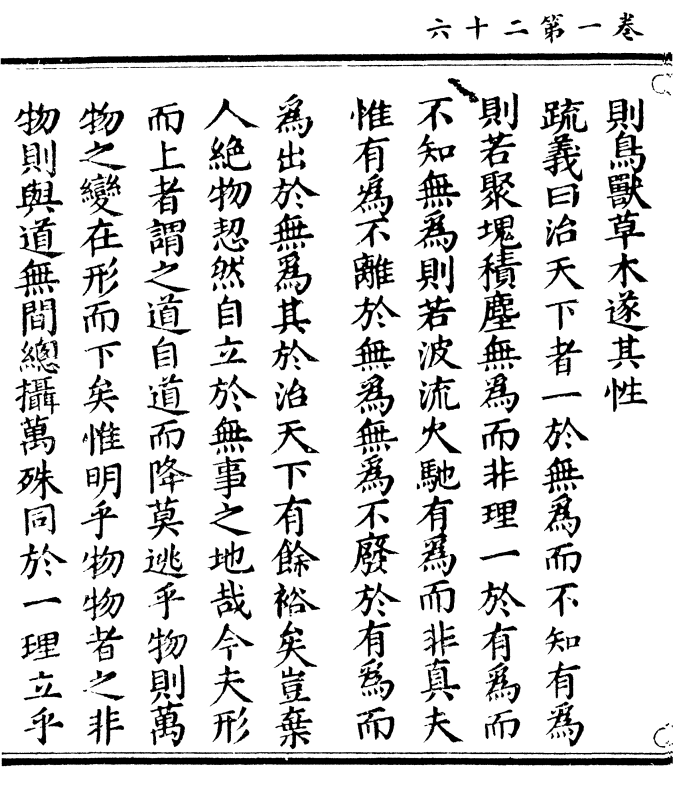 卷一第二十六
則鳥獸草木遂其性
疏義曰治天下者一於無為而不知有為
則若聚塊積塵無為而非理一於有為而
不知無為則若波流火馳有為而非真夫
惟有為不離於無為無為不廢於有為而
為出於無為其於治天下有餘裕矣豈棄
人絶物恝然自立於無事之地哉今夫形
而上者謂之道自道而降莫逃乎物則萬
物之變在形而下矣惟明乎物物者之非
物則與道無間總攝萬殊同於一理立乎